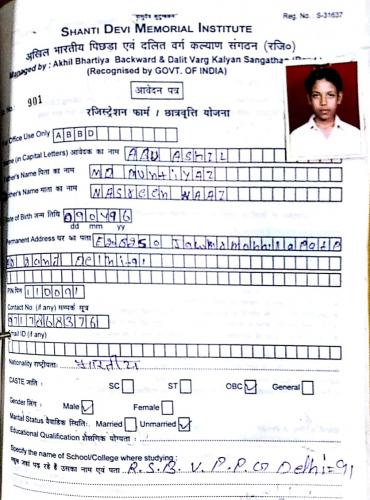 "राष्ट्रदेवो भव"
Reg. No. : S-31637
SHANTI DEVI MEMORIAL INSTITUTE
अखिल भारतीय पिछड़ा एवं दलित वर्ग कल्याण संगठन (रजि०)
Managed by : Akhil Bhartiya Backward & Dalit Varg Kalyan Sangathan
(Recognised by GOVT. OF INDIA)
आवेदन पत्र
No. 901
रजिस्ट्रेशन फार्म / छात्रवृत्ति योजना
Office Use Only ABBD
Name (in Capital Letters) आवेदक का नाम
Father's Name पिता का नाम MD MUNTIYAZ
Mother's Name माता का नाम NASREEN NAAZ
Date of Birth जन्म तिथि 090496
dd mm yy
Permanent Address घर का पता
Delhi-91
PIN पिन 110091
Contact No (if any) सम्पर्क सूत्र
9717868376
Email ID (if any)
Nationality राष्ट्रीयता: भारतीय
CASTE जाति : SC ST OBC General
Gender लिंग : Male Female
Marital Status वैवाहिक स्थिति: Married Unmarried
Educational Qualification शैक्षणिक योग्यता :
Specify the name of School/College where studying :
स्कूल जहां पढ़ रहे है उसका नाम एवं पता : R.S.B.V. P.P.G Delhi-91